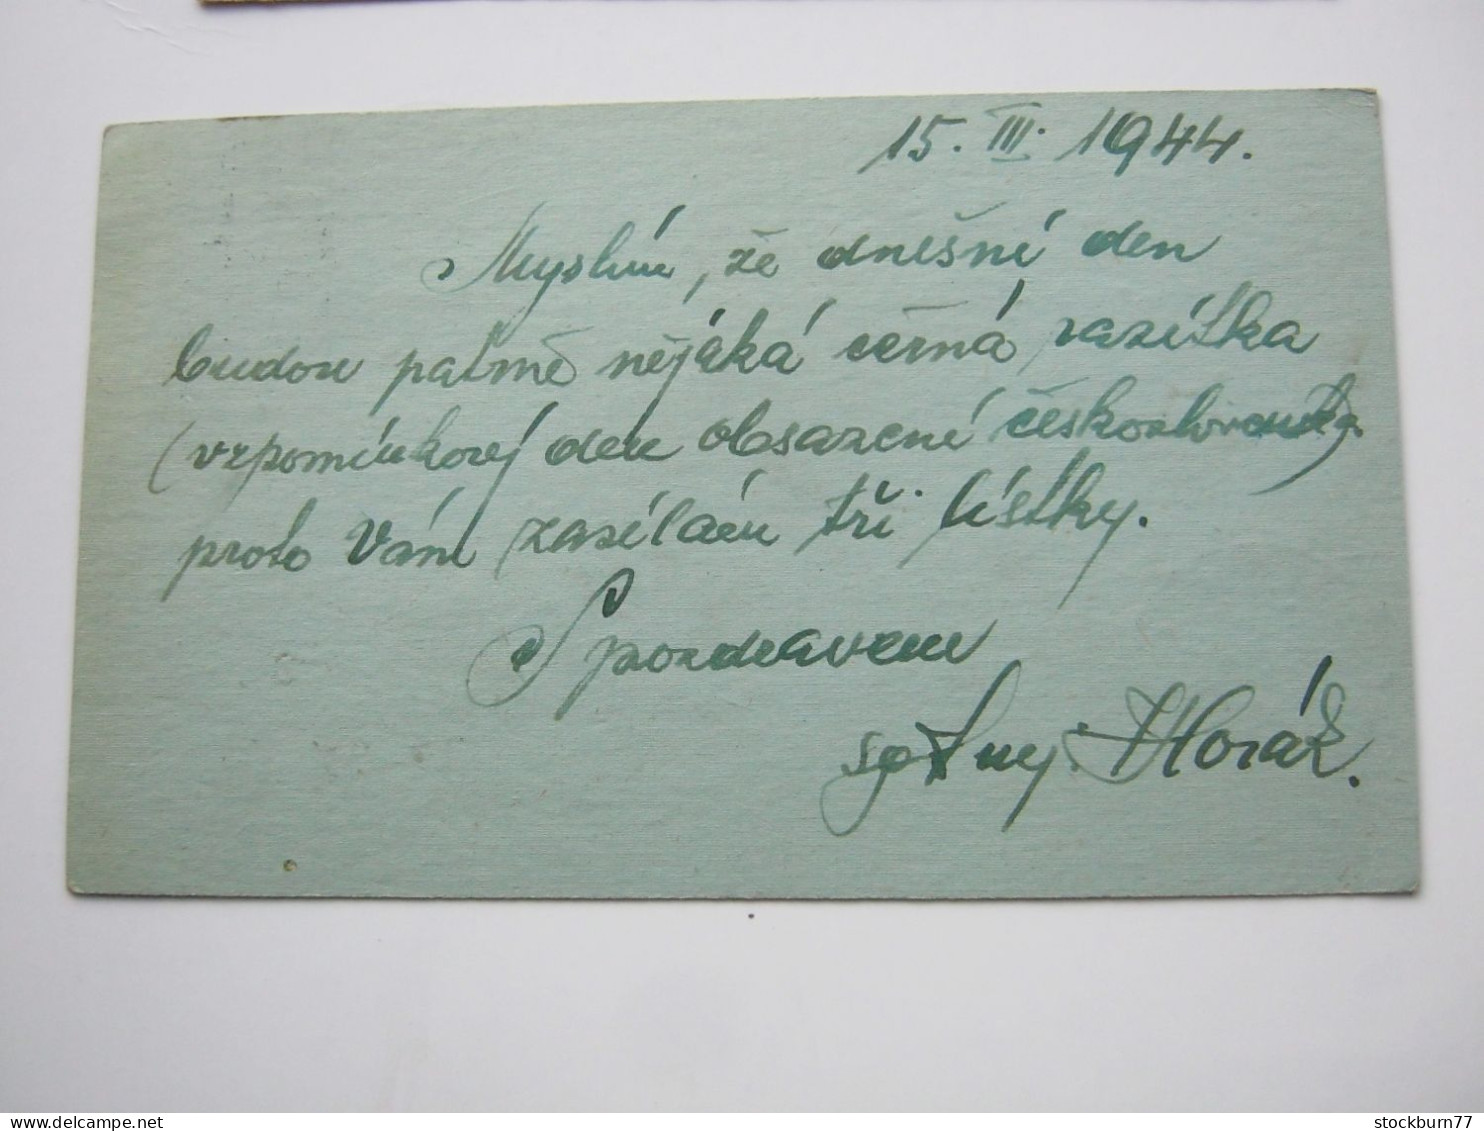 15. III. 1944.
Myslím, že dnešní den
budou patrně nějáká černá razítka
(vzpomínkový den obsazení československa)
proto Vám zasílám tři lístky.
S pozdravem
Horák.
stockburn77